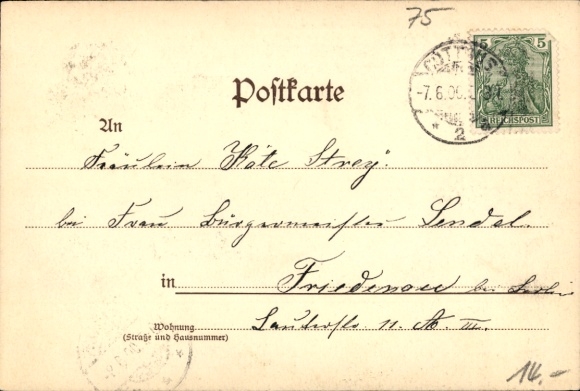 75
5 5
REICHSPOST
COTTBUS
-7.6.00.
* 2
Postkarte
An
Fräulein Käte Strey.
bei Frau Bürgermeister Sendel.
in Friedenau bei Berlin
Wohnung
(Straße und Hausnummer)
Lauterstr 11. A. III.
14.-